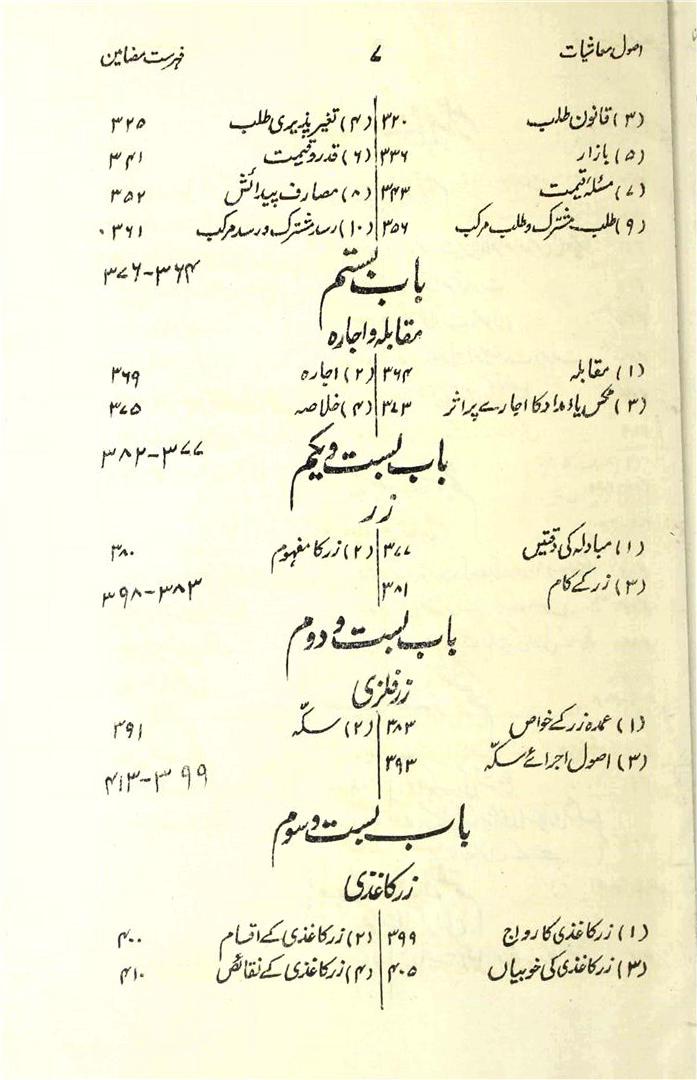 اصول معاشیات ۷ فہرست مضامین
(۳) قانون طلب ۳۲۰ (۴) تغیر پذیری طلب ۳۲۵
(۵) بازار ۳۳۶ (۶) قدر و قیمت ۳۴۱
(۷) مسئلہ قیمت ۳۴۳ (۸) مصارف پیدائش ۳۵۲
(۹) طلب مشترک و طلب مرکب ۳۵۶ (۱۰) رسد مشترک و رسد مرکب ۳۶۱
باب بستم ۳۶۴-۳۷۶
مقابلہ و اجارہ
(۱) مقابلہ ۳۶۴ (۲) اجارہ ۳۶۹
(۳) محصول یا امداد کا اجارے پر اثر ۳۷۳ (۴) خلاصہ ۳۷۵
باب بست و یکم ۳۷۷-۳۸۲
زر
(۱) مبادلہ کی دقتیں ۳۷۷ (۲) زر کا مفہوم ۳۸۰
(۳) زر کے کام ۳۸۱ ۳۸۳-۳۹۸
باب بست و دوم
زر فلزی
(۱) عمدہ زر کے خواص ۳۸۳ (۲) سکہّ ۳۹۱
(۳) اصول اجرائے سکہّ ۳۹۳ ۳۹۹-۴۱۳
باب بست و سوم
زر کاغذی
(۱) زر کاغذی کا رواج ۳۹۹ (۲) زر کاغذی کے اقسام ۴۰۰
(۳) زر کاغذی کی خوبیاں ۴۰۵ (۴) زر کاغذی کے نقائص ۴۱۰